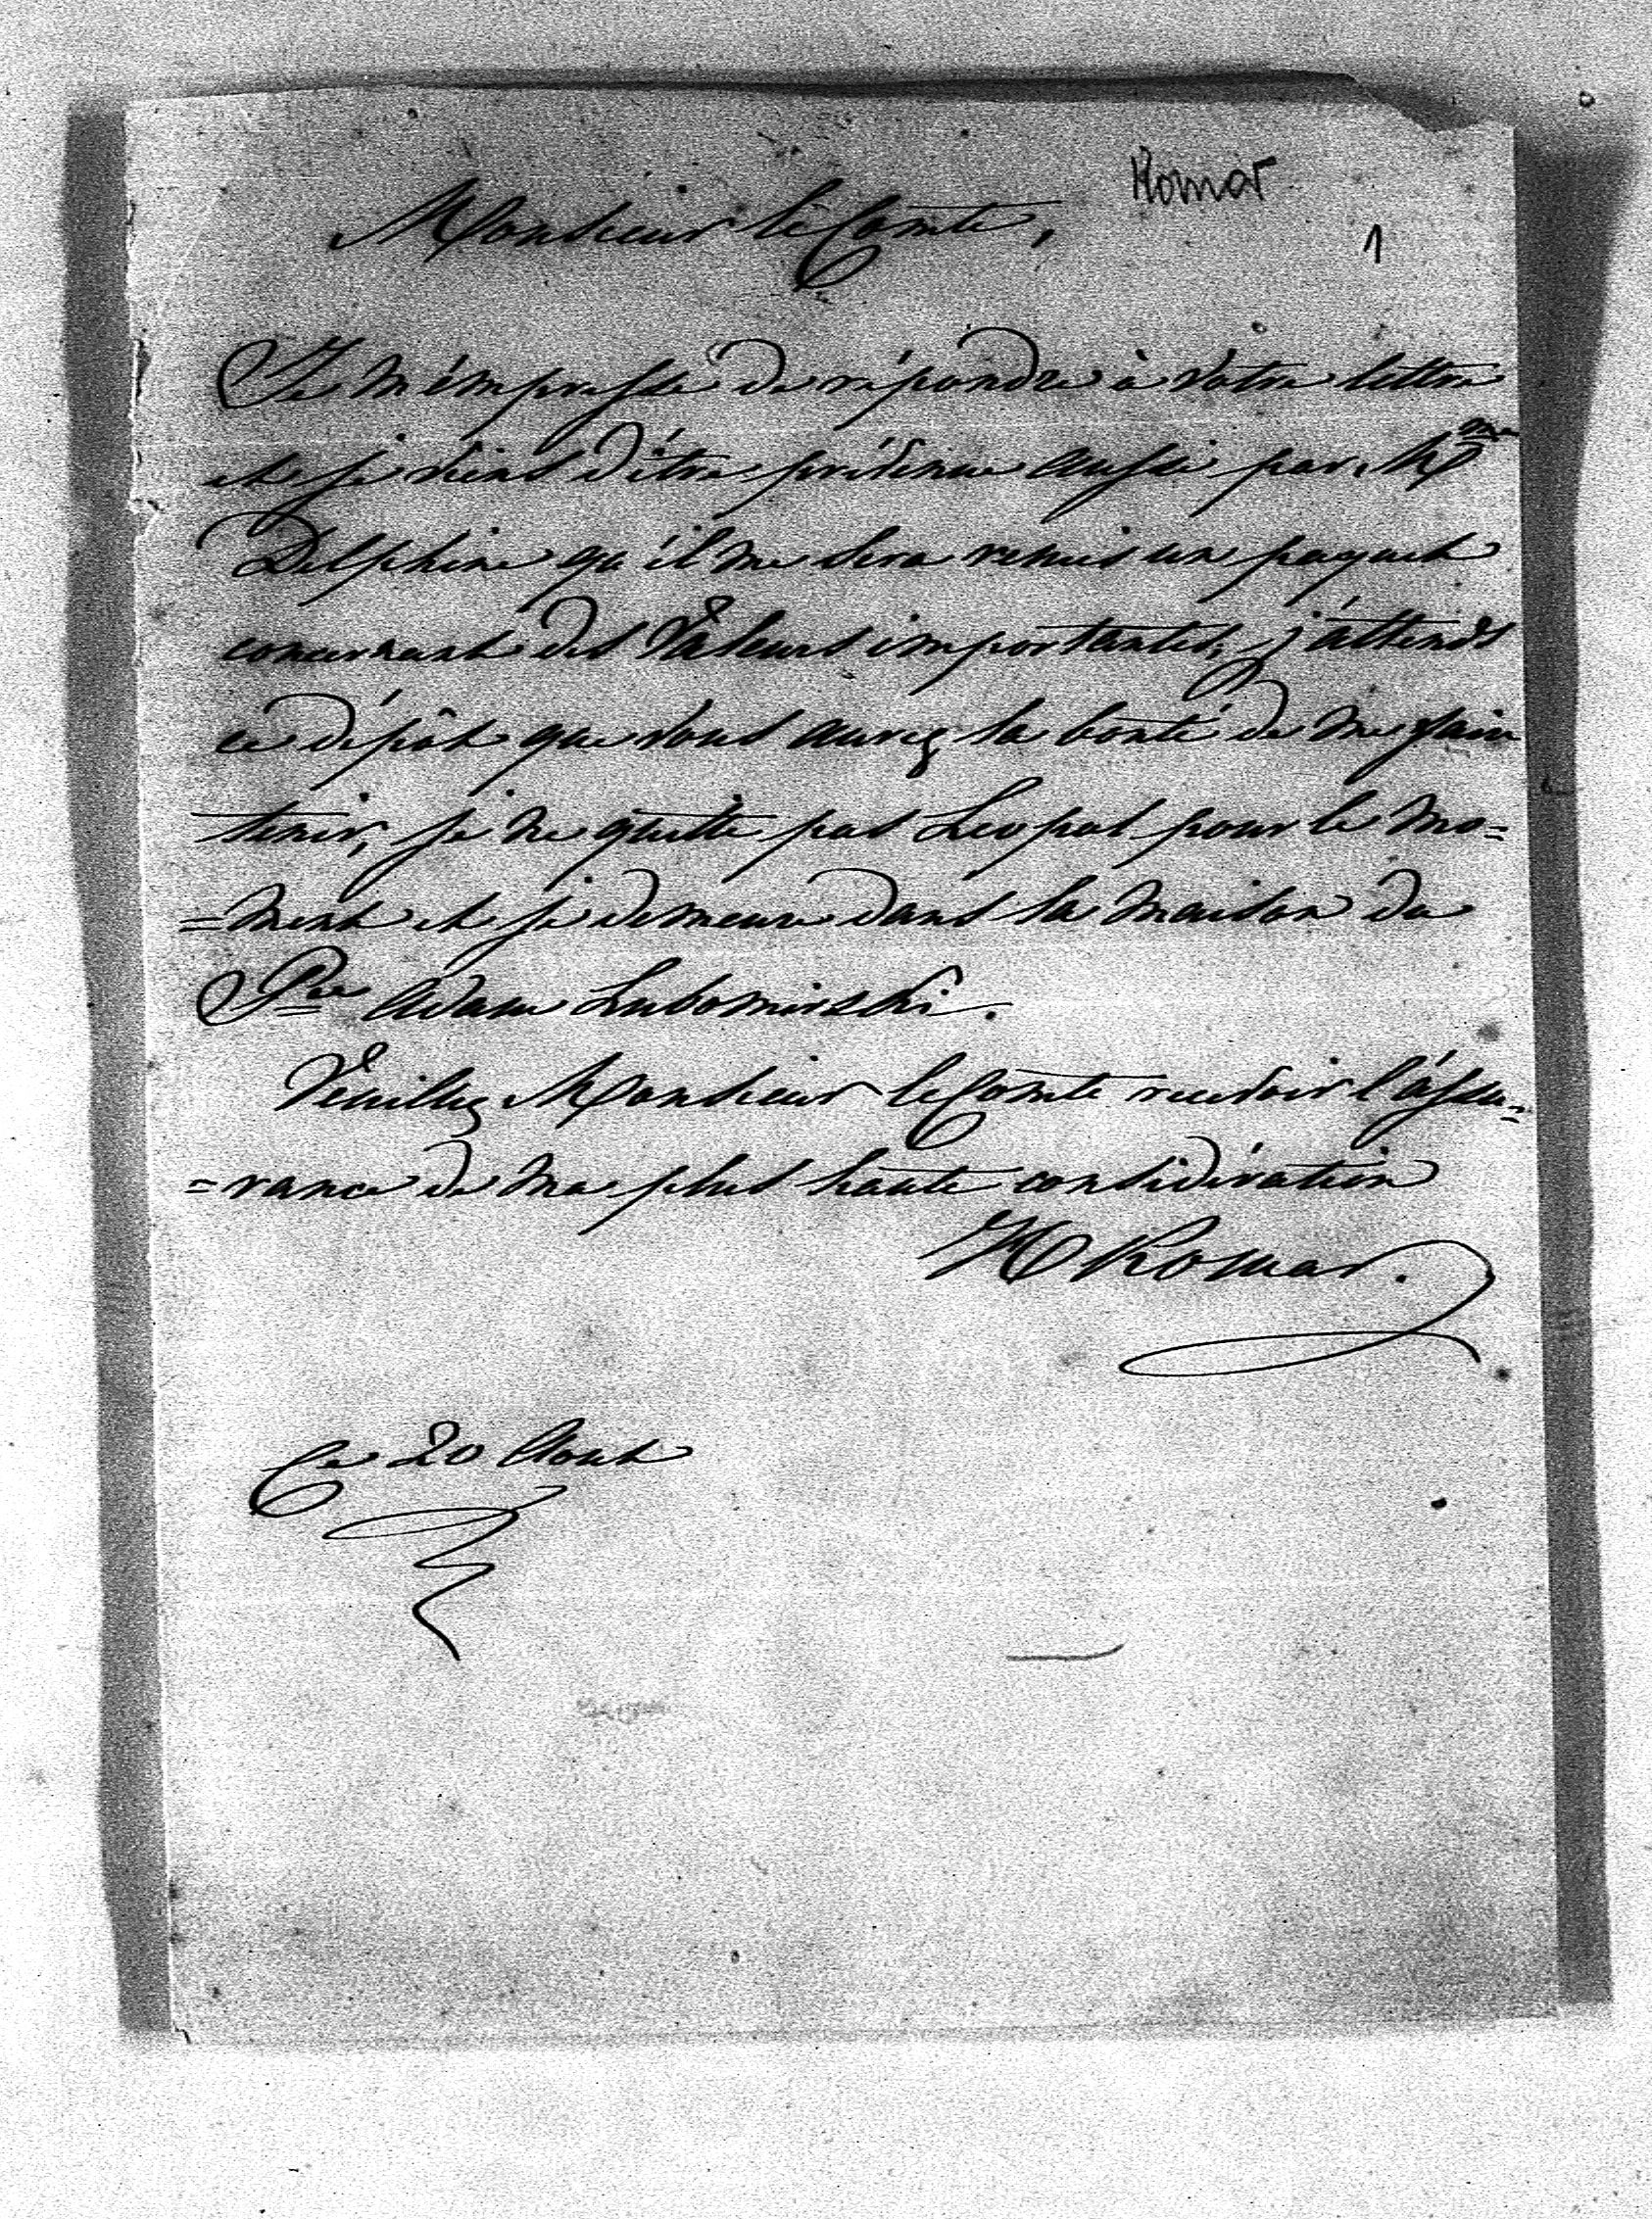 Komar
1
Monsieur le Comte,
Je m'émpresse de répondre à votre lettre
et je viens d'étre prévenue aussi par Mme
Delphine qu'il me sera remis un paquet
concernant des Valeurs importantes, j'attends
ce dépôt que vous aurez la bonté de me faire
tenir, je ne quitte pas Leopol pour le mo=
=ment et je demeure dans la maison du
Pce Adam Lubomirski.
Veuillez Monsieur le Comte recevoir l'assu=
=rance de ma plus haute considération
H Komar.
Ce 20 Aout